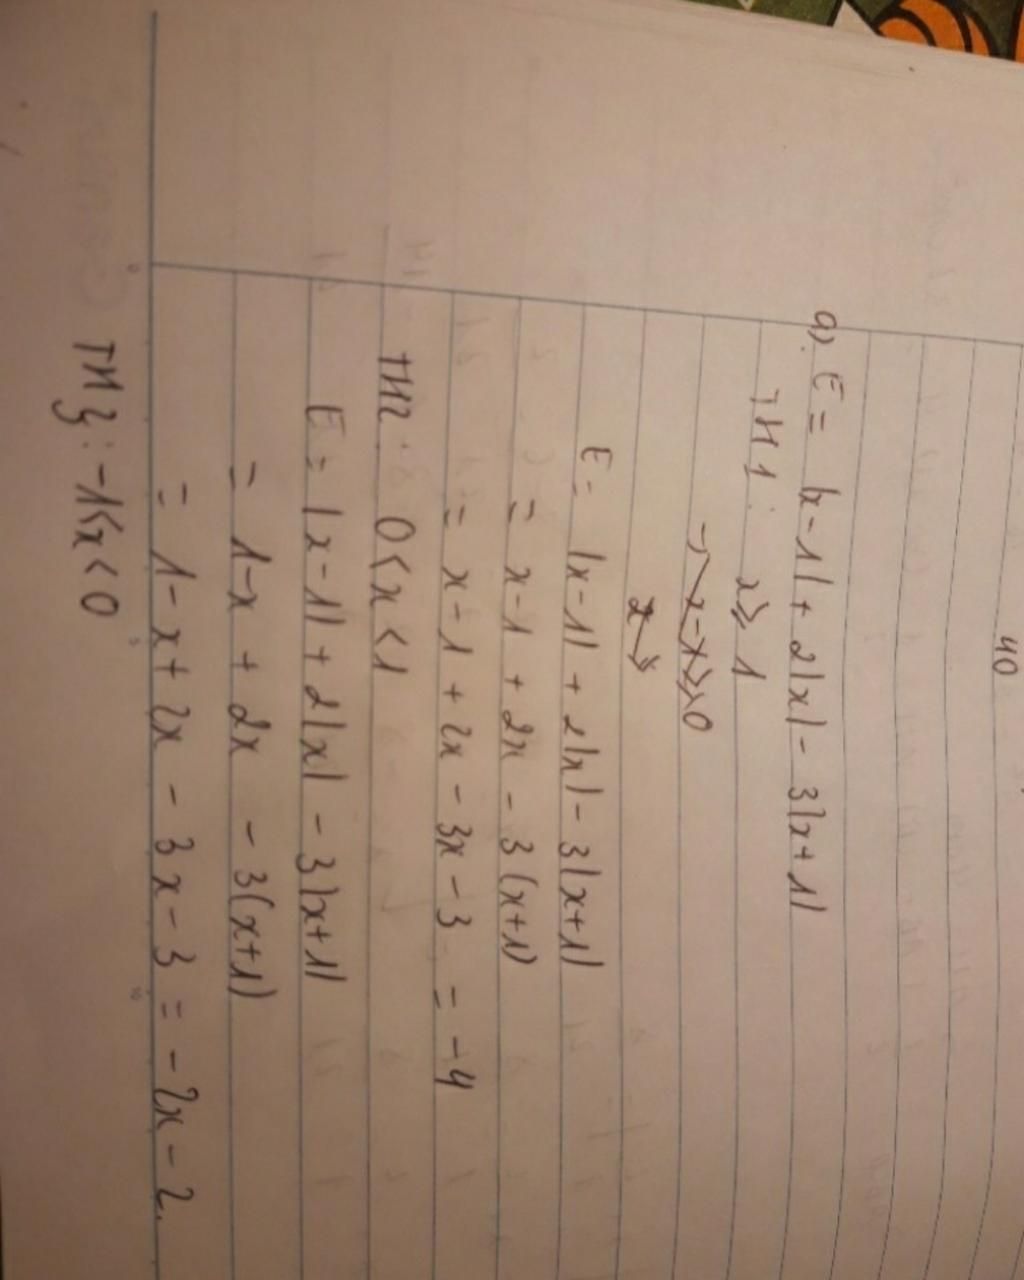 40
a) E = |x-1| + 2|x| - 3|x+1|
TH1: x ≥ 1
E = |x-1| + 2|x| - 3|x+1|
= x-1 + 2x - 3(x+1)
= x-1 + 2x - 3x - 3 = -4
TH2: 0<x<1
E = |x-1| + 2|x| - 3|x+1|
= 1-x + 2x - 3(x+1)
= 1-x + 2x - 3x - 3 = -2x - 2.
TH3: -1≤x<0